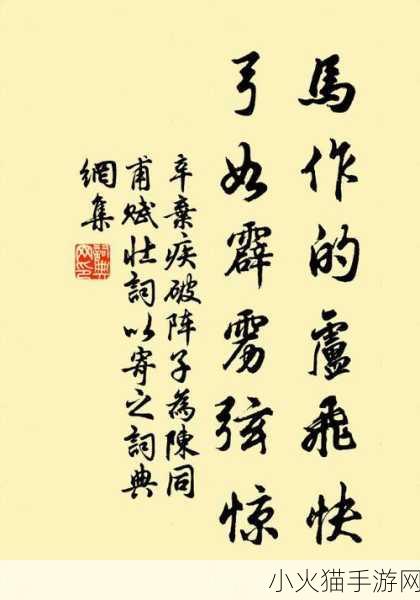 馬作的盧飛快
弓如霹雳弦惊
辛棄疾破阵子為陳同
甫赋壮詞以寄之詞典
網集
小火猫手游网